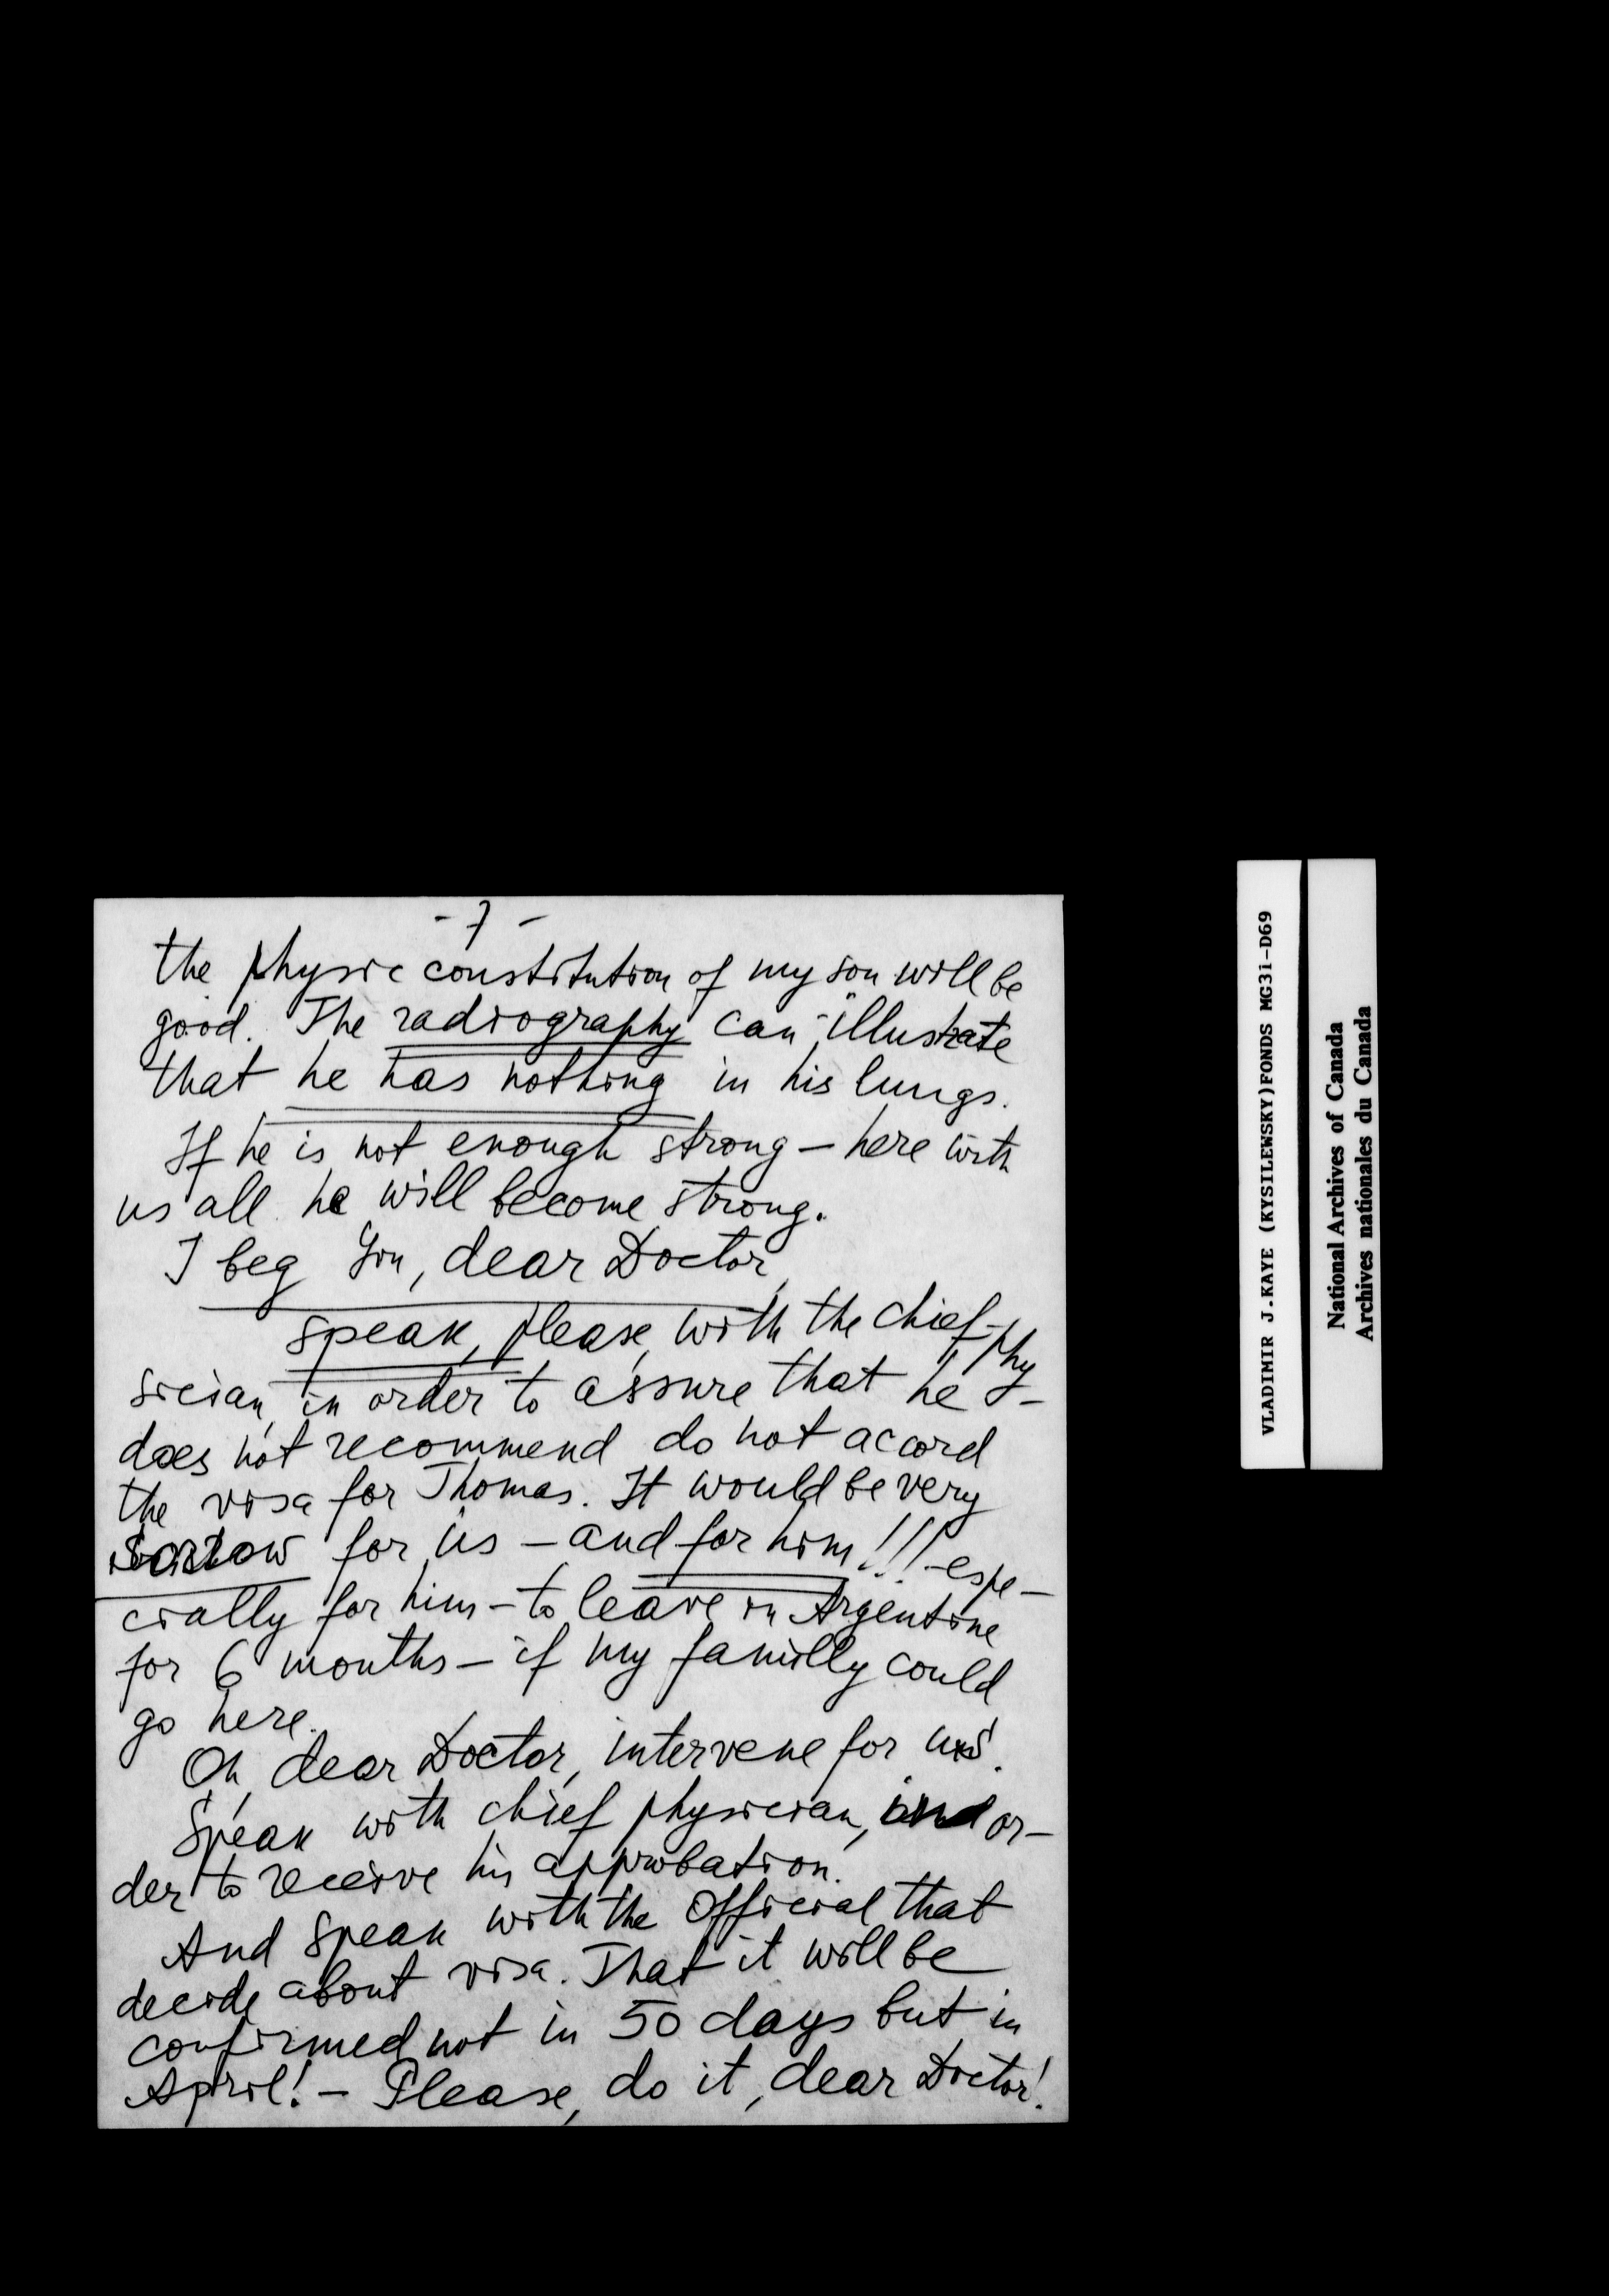 - 7 -
the physic constitution of my son will be
good. The radiography can illustrate
that he has nothing in his lungs.
If he is not enough strong – here with
us all he will become strong.
I beg You, dear Doctor,
speak, please, with the chief-phy
sician, in order to assure that he
does not recommend do not accord
the visa for Thomas. It would be very
sorrow for us – and for him!!! – espe-
cially for him – to leave in Argentine
for 6 months – if my familly could
go here.
Oh, dear Doctor, intervene for us.
Speak with chief physician, in or-
der to receive his approbation.
And speak with the Official that
decide about visa. That it will be
confirmed not in 50 days but in
April! – Please, do it, dear Doctor!
VLADIMIR J.KAYE (KYSILEWSKY)FONDS MG31-D69
National Archives of Canada
Archives nationales du Canada